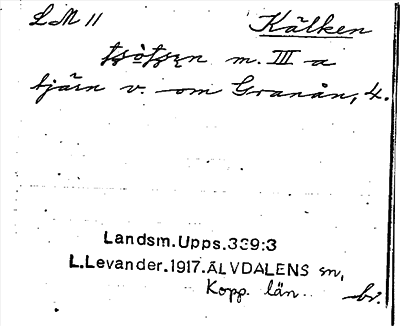 LM 11 Kälken
m. III a
tjärn v. om Granån, 4.
Landsm.Upps.339:3
L.Levander.1917.ÄLVDALENS sn,
Kopp. län. br.